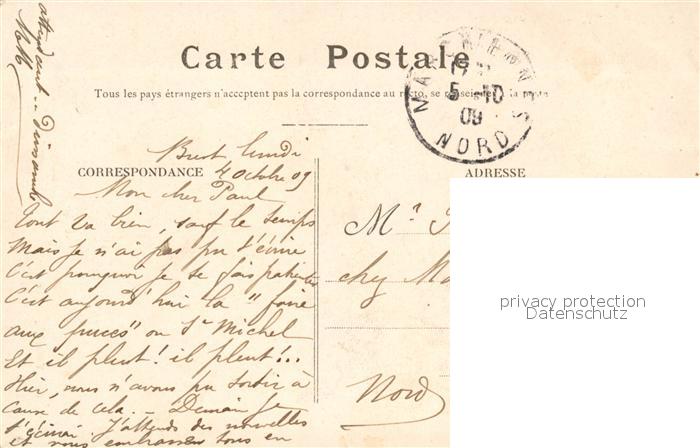 Carte Postale
Tous les pays étrangers n'acceptent pas la correspondance au recto, se renseigner à la poste
MARCHIENNES
5-10
09
NORD
CORRESPONDANCE
ADRESSE
Brest lundi
4 Octobre 09
Mon cher Paul
Tout va bien, sauf le temps
Mais je n'ai pas pu t'écrire
C'est pourquoi je te fais patienter
C'est aujourd'hui la "foire
aux puces" ou St Michel
Et il pleut! il pleut!..
Hier, nous n'avons pu sortir à
cause de cela. - Demain je
t'écrirai. J'attends des nouvelles
et vous embrassons tous en
attendant.. Dimanche
Mr
chez
Nord
privacy protection
Datenschutz